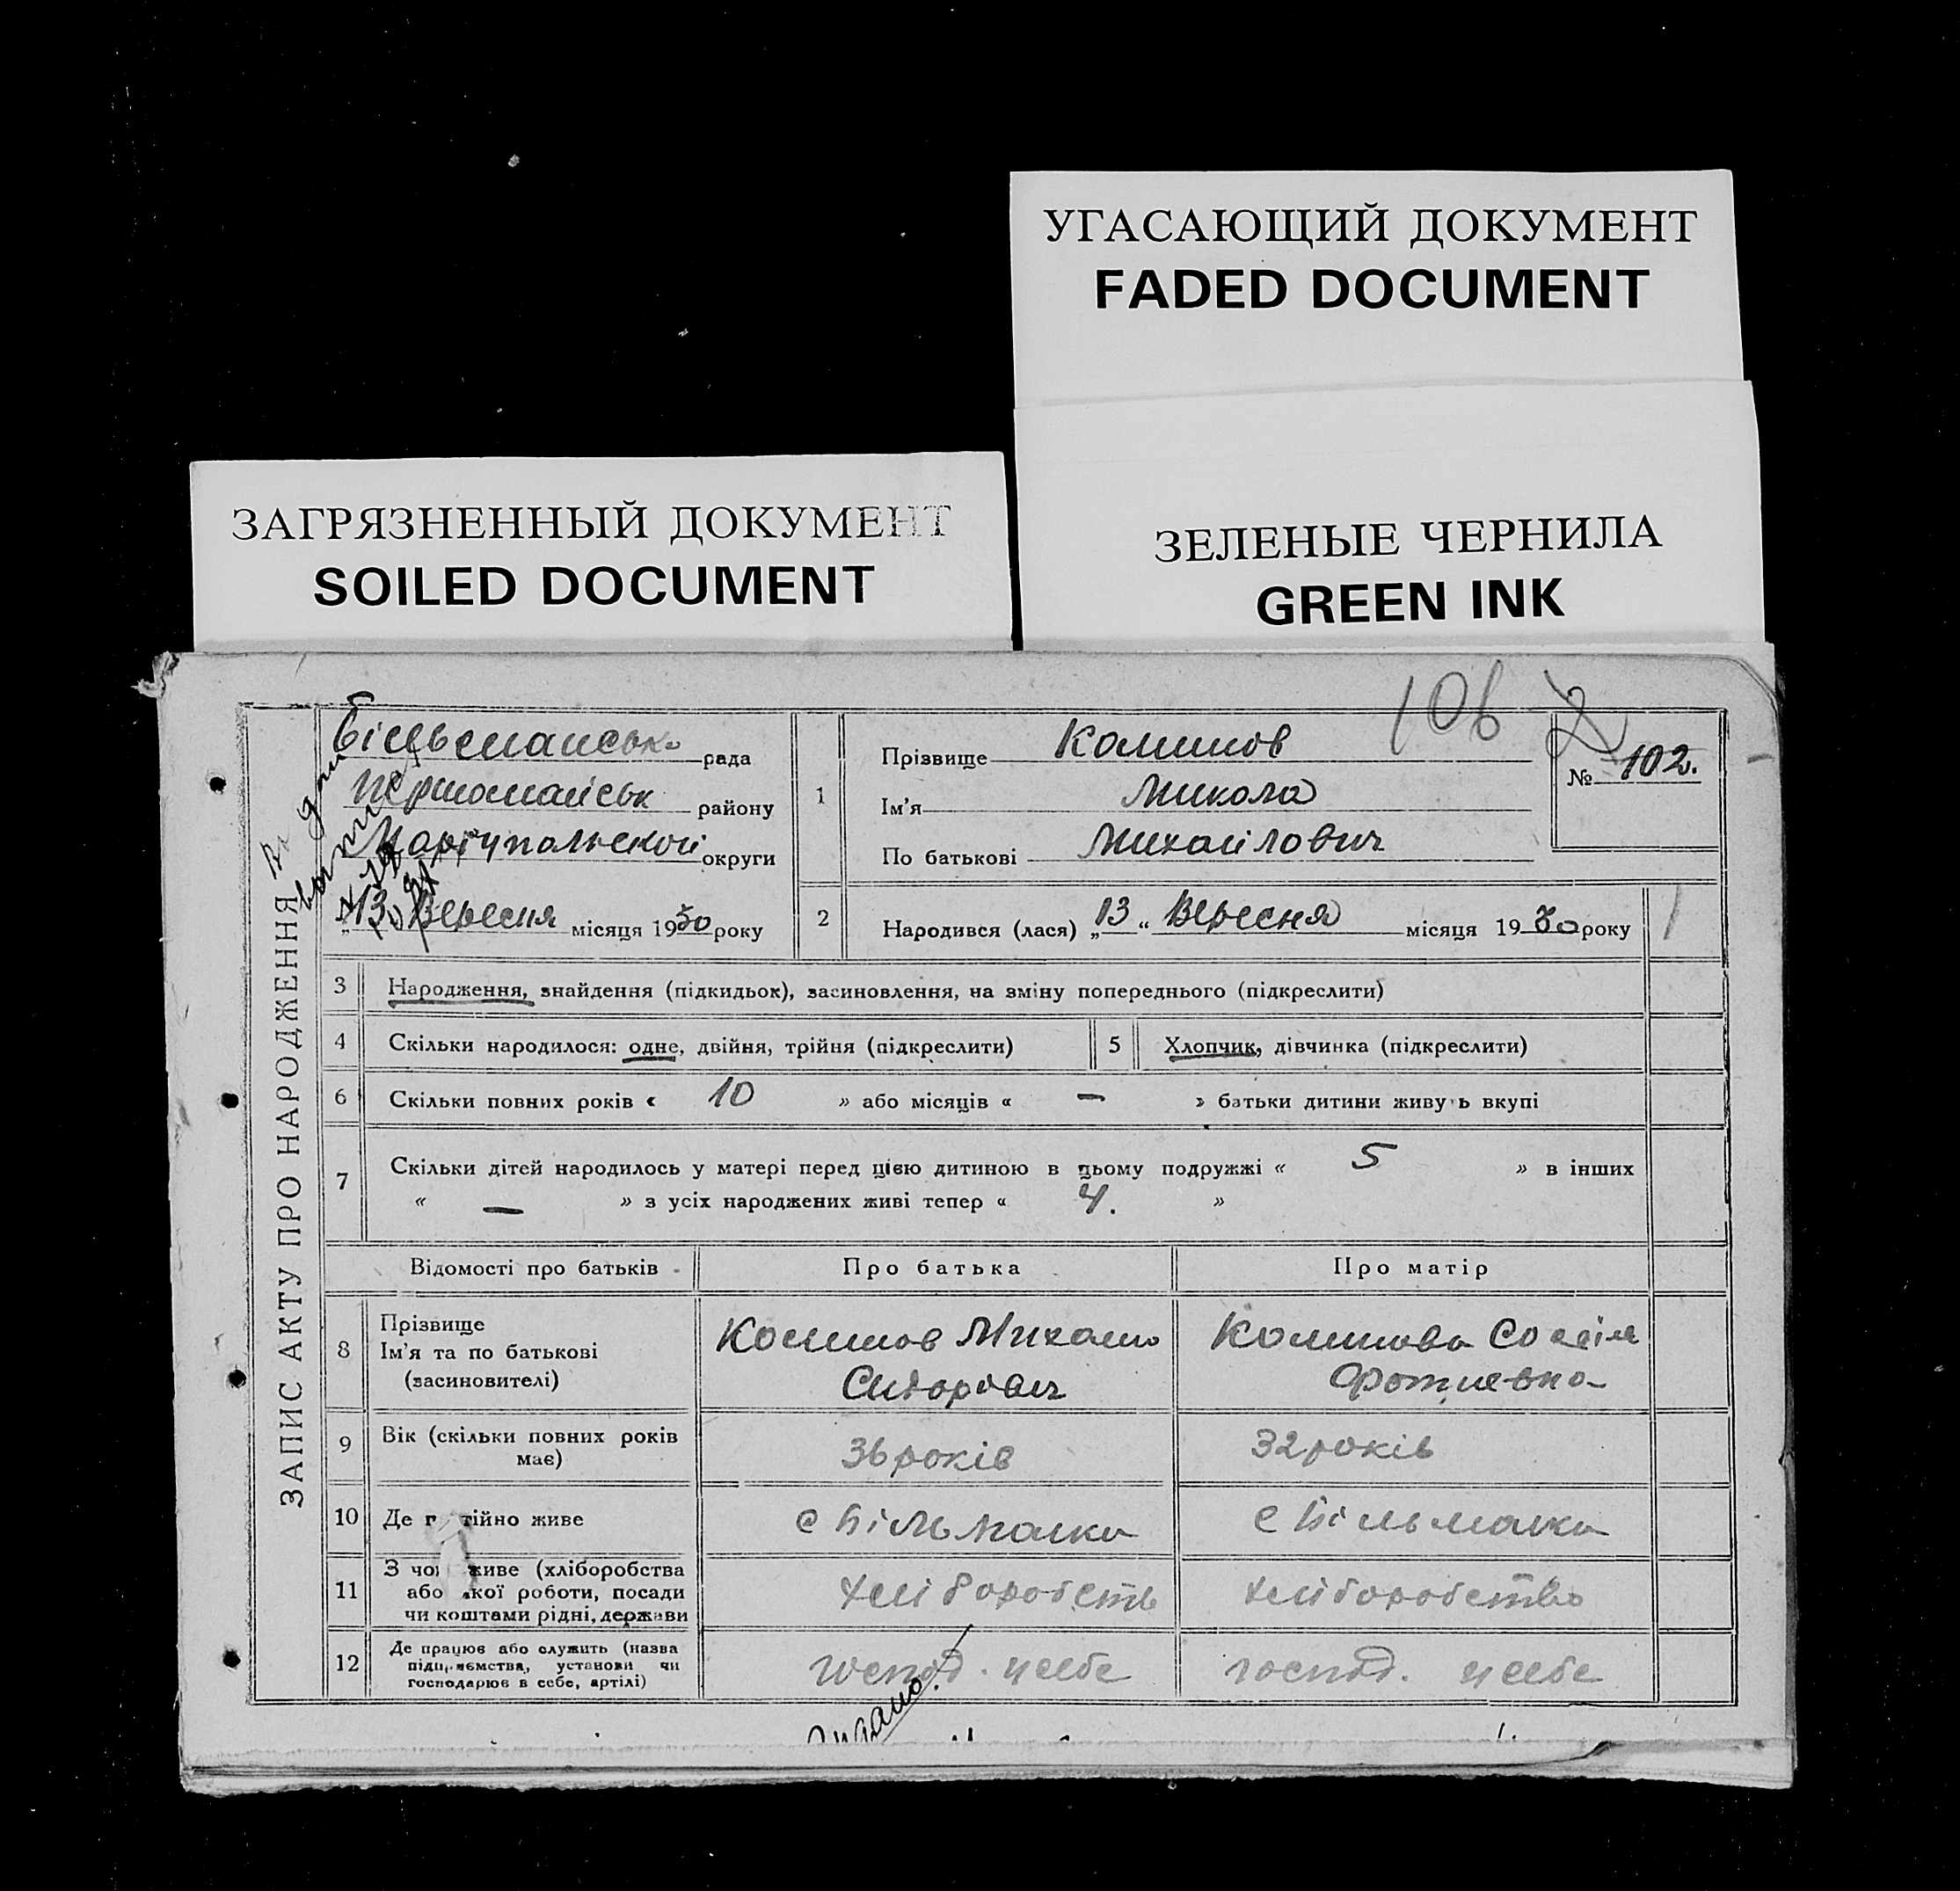 УГАСАЮЩИЙ ДОКУМЕНТ
FADED DOCUMENT
ЗАГРЯЗНЕННЫЙ ДОКУМЕНТ
SOILED DOCUMENT
ЗЕЛЕНЫЕ ЧЕРНИЛА
GREEN INK
106
ЗАПИС АКТУ ПРО НАРОДЖЕННЯ
рада
району
Маріупольской округи
„13 Вересня місяця 1930 року
1
Прізвище
Ім'я Микола
По батькові Михайлович
№ 102.
2
Народився (лася) „13“ Вересня місяця 1930 року
3 Народження, знайдення (підкидьок), засиновлення, на зміну попереднього (підкреслити)
4 Скільки народилося: одне, двійня, трійня (підкреслити)
5 Хлопчик, дівчинка (підкреслити)
6 Скільки повних років « 10 » або місяців « — » батьки дитини живуть вкупі
7 Скільки дітей народилось у матері перед цією дитиною в цьому подружжі « 5 » в інших
« — » з усіх народжених живі тепер « 4. »
Відомості про батьків
Про батька
Про матір
8 Прізвище
Ім'я та по батькові
(засиновителі)
Михайло
Сидорович
9 Вік (скільки повних років
має)
36 років
32 років
10 Де постійно живе
с Більманка
с Більманка
11 З чого живе (хліборобства
або якої роботи, посади
чи коштами рідні, держави
хліборобств
хліборобство
12 Де працює або служить (назва
підприємства, установи чи
господарює в себе, артілі)
господ. у себе
господ. у себе